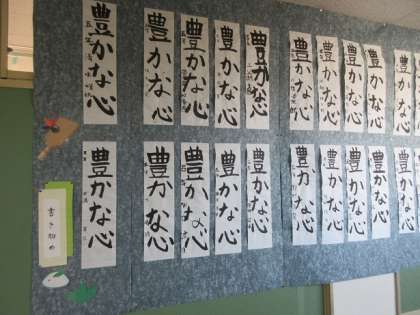 豊かな心
豊かな心
豊かな心
豊かな心
豊かな心
豊かな心
豊かな心
豊かな心
豊かな心
豊かな心
書き初め
豊かな心
豊かな心
豊かな心
豊かな心
豊かな心
豊かな心
豊かな心
豊かな心
豊かな心
豊かな心